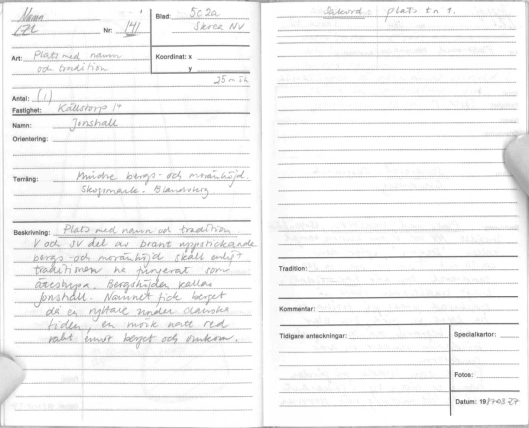 Namn
Nr: 141
Blad: 5c2a
Skrea NV
Art: Plats med namn
och tradition
Koordinat: x
y
25 m öh
Antal: (1)
Fastighet: Källstorp 1:4
Namn: Jonshall
Orientering:
Terräng: Mindre bergs- och moränhöjd.
Skogsmark. Blandskog
Beskrivning: Plats med namn och tradition
V och SV del av brant uppstickande
bergs- och moränhöjd skall enligt
traditionen ha fungerat som
ättestupa. Bergshöjden kallas
Jonshall. Namnet fick berget
då en ryttare under danska
tiden, en mörk natt red
rakt emot berget och omkom.
Sakord: plats tn 1.
Tradition:
Kommentar:
Tidigare anteckningar:
Specialkartor:
Fotos:
Datum: 19